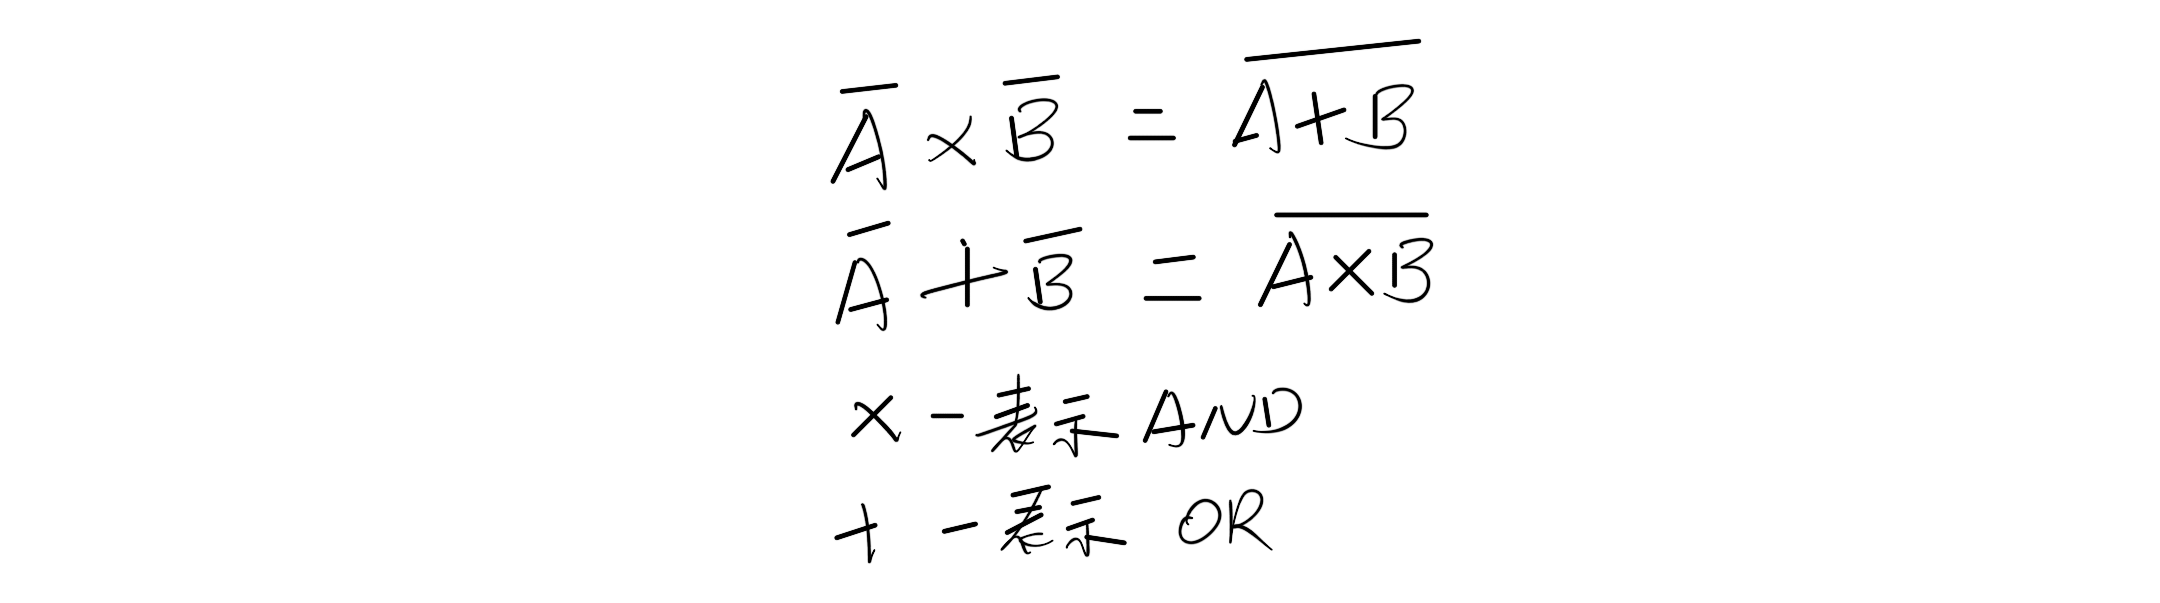 A̅ × B̅ = \overline{A+B}
A̅ + B̅ = \overline{A×B}
× - 表示 AND
+ - 表示 OR